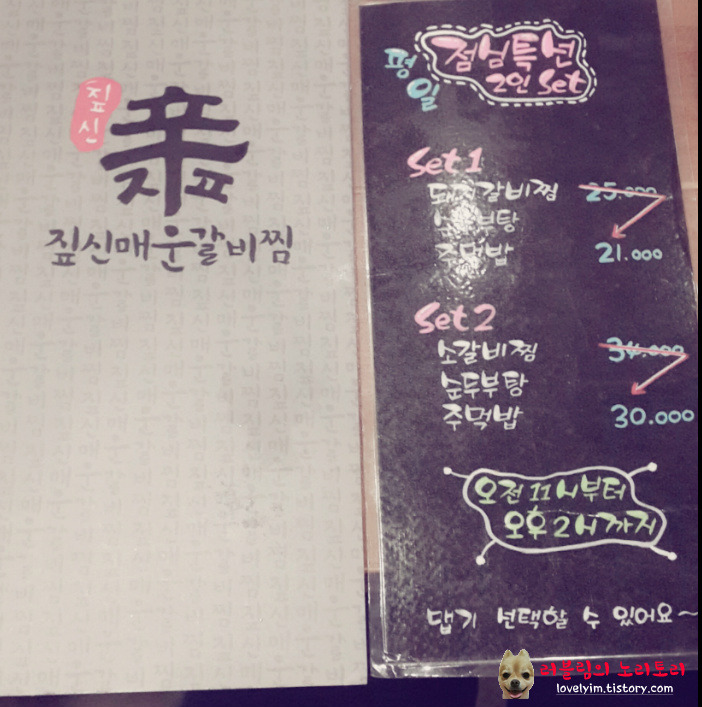 짚신
짚신매운갈비찜
평일
점심특선
2인 Set
Set 1
돼지갈비찜 25.000
순두부탕
주먹밥 21.000
Set 2
소갈비찜 34.000
순두부탕
주먹밥 30.000
오전 11시부터
오후 2시까지
맵기 선택할 수 있어요~
러블림의 노리토리
lovelyim.tistory.com